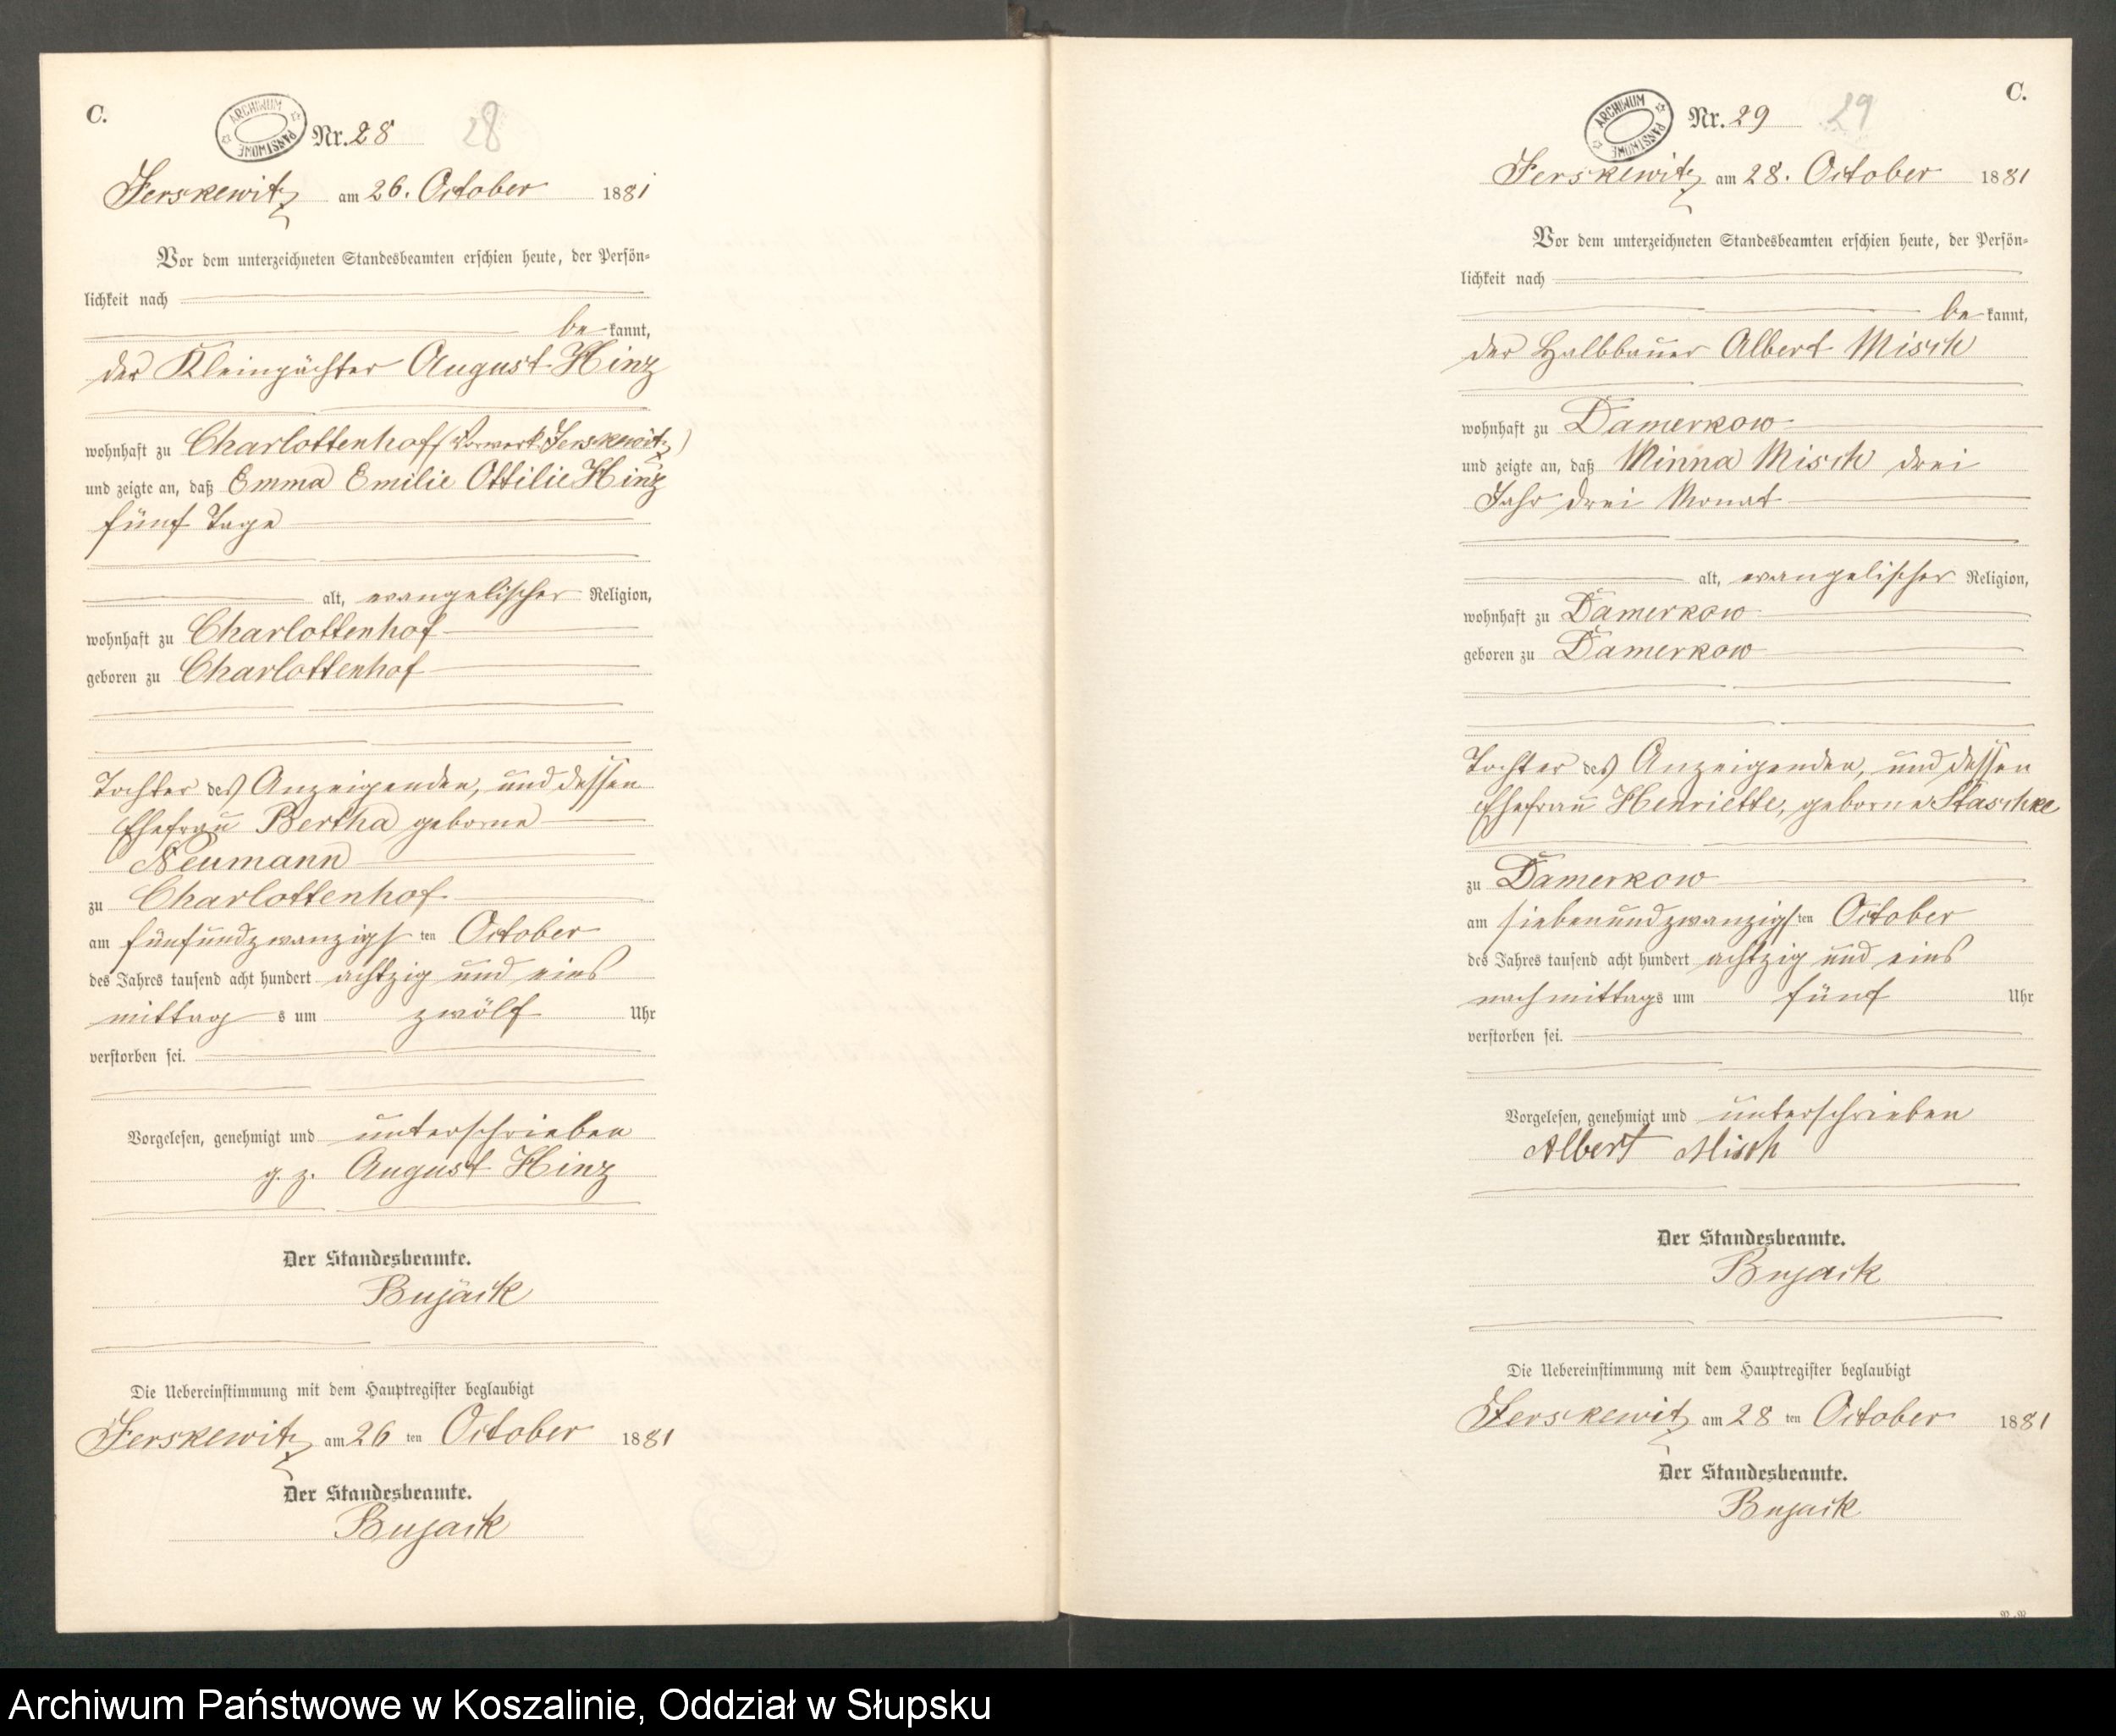 C.
ARCHIWUM PAŃSTWOWE
Nr. 28 28
Jerskewitz am 26. October 1881
Vor dem unterzeichneten Standesbeamten erschien heute, der Persön-
lichkeit nach
be kannt,
der Kleinpächter August Hinz
wohnhaft zu Charlottenhof (Vorwerk Jerskewitz)
und zeigte an, daß Emma Emilie Ottilie Hinz
fünf Tage
alt, evangelischer Religion,
wohnhaft zu Charlottenhof
geboren zu Charlottenhof
Tochter des Anzeigenden, und dessen
Ehefrau Bertha geborne
Neumann
zu Charlottenhof
am fünfundzwanzigs ten October
des Jahres tausend acht hundert achtzig und eins
mittag s um zwölf Uhr
verstorben sei.
Vorgelesen, genehmigt und unterschrieben
g. z. August Hinz
Der Standesbeamte.
Bujack
Die Uebereinstimmung mit dem Hauptregister beglaubigt
Jerskewitz am 26 ten October 1881
Der Standesbeamte.
Bujack
C.
ARCHIWUM PAŃSTWOWE
Nr. 29 29
Jerskewitz am 28. October 1881
Vor dem unterzeichneten Standesbeamten erschien heute, der Persön-
lichkeit nach
be kannt,
der Halbbauer Albert Misch
wohnhaft zu Damerkow
und zeigte an, daß Minna Misch drei
Jahr drei Monat
alt, evangelischer Religion,
wohnhaft zu Damerkow
geboren zu Damerkow
Tochter des Anzeigenden, und dessen
Ehefrau Henriette, geborne Staschke
zu Damerkow
am siebenundzwanzigs ten October
des Jahres tausend acht hundert achtzig und eins
nachmittags um fünf Uhr
verstorben sei.
Vorgelesen, genehmigt und unterschrieben
Albert Misch
Der Standesbeamte.
Bujack
Die Uebereinstimmung mit dem Hauptregister beglaubigt
Jerskewitz am 28 ten October 1881
Der Standesbeamte.
Bujack
Archiwum Państwowe w Koszalinie, Oddział w Słupsku